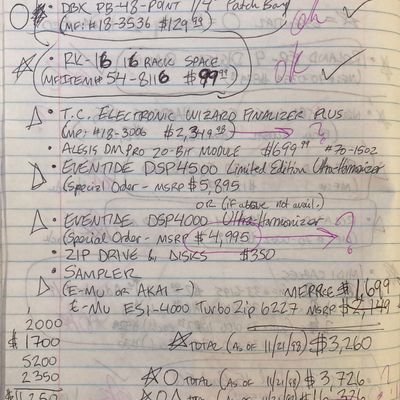 • DBX PB-48-POINT 1/4" Patch Bay
(MF#18-3536 $129.99) oh ✓
☆ • RK-16 16 RACK SPACE
MFITEM#54-8116 $99.99 ok ✓
△ • T.C. ELECTRONIC WIZARD FINALIZER PLUS
(MF#18-3006 $2,349.98 → ?
• ALESIS DMPRO 20-BIT MODULE $699.99 #70-1502
△ • EVENTIDE DSP4500 Limited Edition UltraHarmonizer
(Special Order - MSRP $5,895
OR (if above not avail.)
△ • EVENTIDE DSP4000 UltraHarmonizer
(Special Order - MSRP $4,995 ?
• ZIP DRIVE & DISKS $350
• SAMPLER
△ (E-MU OR AKAI - ) MFPRICE $1,699
E-MU ESI-4000 Turbo Zip 6227 MSRP $2,149
2000
$1700 ☆ TOTAL (AS OF 11/21/98) $3,260
5200
2350 ☆○ TOTAL (AS OF 11/21/98) $3,726